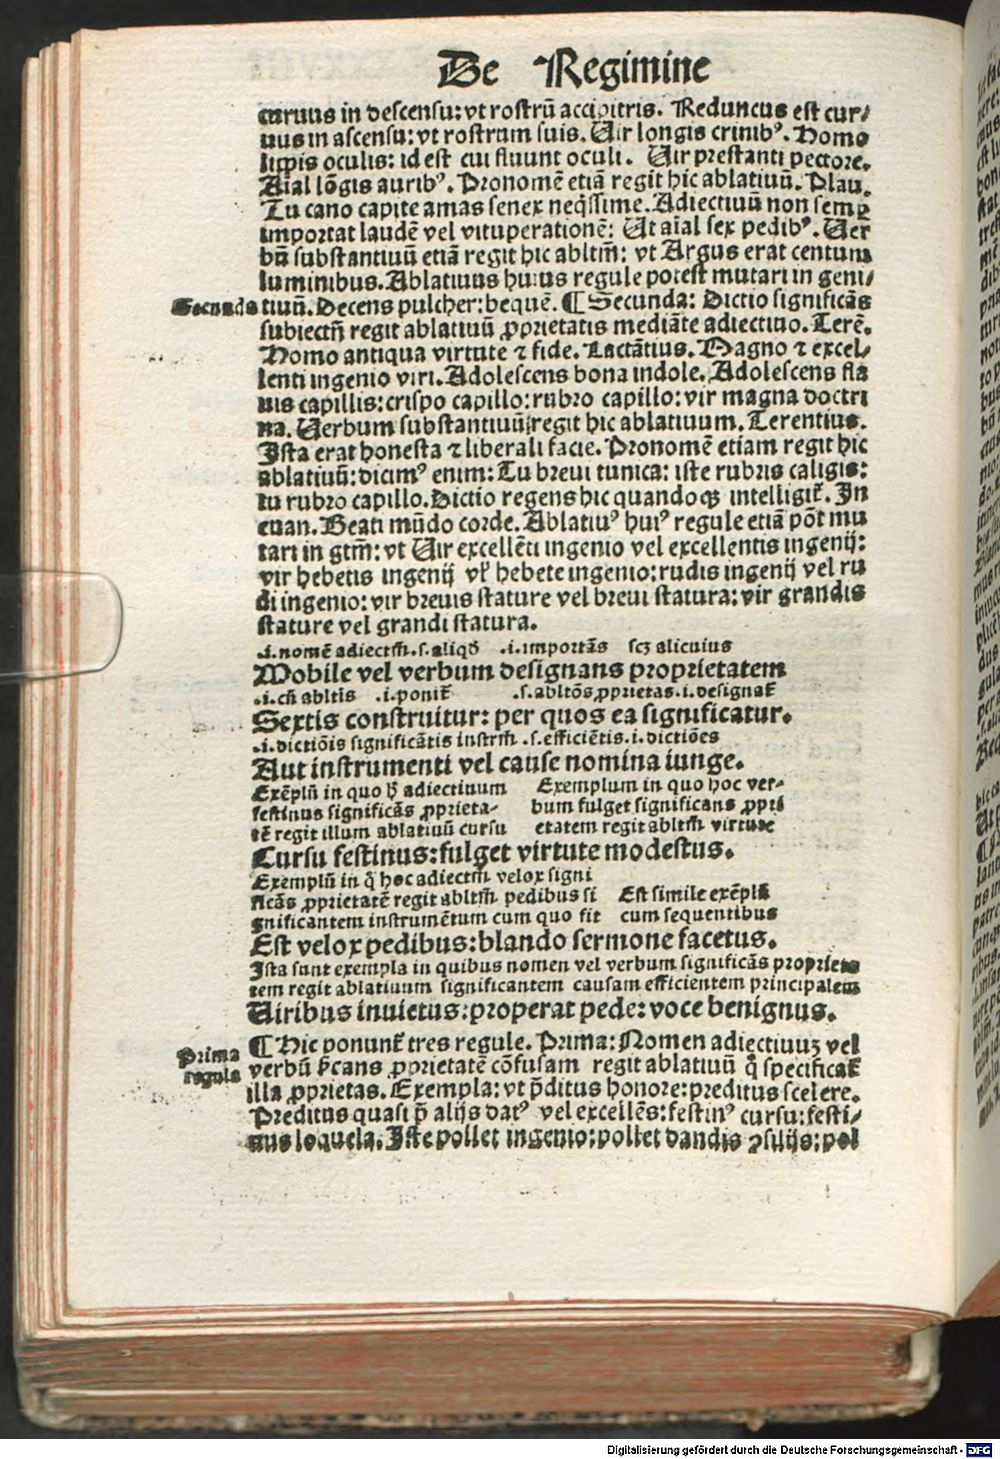 De Regimine
curuus in descensu: vt rostrū accipitris. Reduncus est cur/
uus in ascensu: vt rostrum suis. Uir longis crinibꝰ. Homo
lippis oculis: id est cui fluunt oculi. Uir prestanti pectore.
Aīal lōgis auribꝰ. Pronomē etiā regit hic ablatiuū. Plau.
Tu cano capite amas senex neq̄ssime. Adiectiuū non semꝑ
importat laudē vel vituperationē: Ut aīal sex pedibꝰ. Uer
bū substantiuū etiā regit hic abltm̄: vt Argus erat centum
luminibus. Ablatiuus huius regule potest mutari in geni/
Secunda
tiuū. Decens pulcher: bequē. ¶ Secunda: Dictio significās
subiectū regit ablatiuū ꝓprietatis mediāte adiectiuo. Terē.
Homo antiqua virtute ⁊ fide. Lactātius. Magno ⁊ excel/
lenti ingenio viri. Adolescens bona indole. Adolescens fla
uis capillis: crispo capillo: rubro capillo: vir magna doctri
na. Uerbum substantiuū regit hic ablatiuum. Terentius.
Ista erat honesta ⁊ liberali facie. Pronomē etiam regit hic
ablatiuū: dicimꝰ enim: Tu breui tunica: iste rubris caligis:
tu rubro capillo. Dictio regens hic quandoqꝫ intelligit᷑. In
euan. Beati mūdo corde. Ablatiuꝰ huiꝰ regule etiā pōt mu
tari in gtm̄: vt Uir excellēti ingenio vel excellentis ingenij:
vir hebetis ingenij vl̓ hebete ingenio: rudis ingenij vel ru
di ingenio: vir breuis stature vel breui statura: vir grandis
stature vel grandi statura.
.i. nomē adiectm̄. s. aliqd̓ .i. importās scꝫ alicuius
Mobile vel verbum designans proprietatem
.i. cū abltis .i. ponit᷑ .s. abltōs ꝓprietas .i. designat᷑
Sextis construitur: per quos ea significatur.
.i. dictiōis significātis instrm̄ .s. efficiētis .i. dictiōes
Aut instrumenti vel cause nomina iunge.
Exēplū in quo h̓ adiectiuum
festinus significās ꝓprieta-
tē regit illum ablatiuū cursu
Exemplum in quo hoc ver-
bum fulget significans ꝓpri
etatem regit abltm̄ virtute
Cursu festinus: fulget virtute modestus.
Exemplū in q̄ hoc adiectm̄ velox signi
ficās ꝓprietatē regit abltm̄ pedibus si
gnificantem instrumētum cum quo fit
Est simile exēplū
cum sequentibus
Est velox pedibus: blando sermone facetus.
Ista sunt exempla in quibus nomen vel verbum significās proprieta
tem regit ablatiuum significantem causam efficientem principalem
Uiribus inuictus: properat pede: voce benignus.
Prima
regula
¶ Hic ponunt᷑ tres regule. Prima: Nomen adiectiuuꝫ vel
verbū s̓cans ꝓprietatē cōfusam regit ablatiuū q̊ specificat᷑
illa ꝓprietas. Exempla: vt p̄ditus honore: preditus scelere.
Preditus quasi p̄ alijs datꝰ vel excellēs: festinꝰ cursu: festi/
nus loquela. Iste pollet ingenio: pollet dandis ꝯsilijs: pol
Digitalisierung gefördert durch die Deutsche Forschungsgemeinschaft - DFG